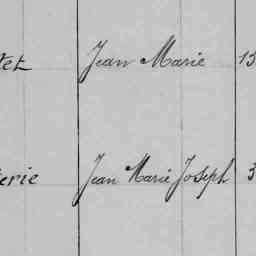 tet Jean Marie 13
erie Jean Marie Joseph 3